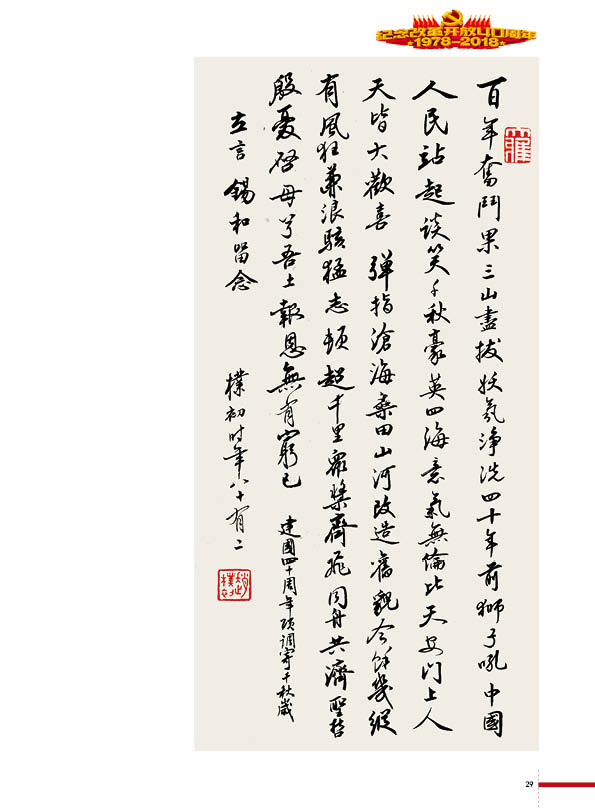 纪念改革开放40周年
1978-2018
百年奮鬥果三山盡拔妖氛淨洗四十年前獅子吼中國
人民站起談笑千秋豪英四海意氣無倫比天安门上人
天皆大歡喜 彈指滄海桑田山河改造舊觀今餘幾縱
有風狂兼浪駭猛志頓超千里眾槳齊飛同舟共濟聖哲
殷憂啓母兮吾土報恩無有窮已 建國四十周年頌調寄千秋歲
立言 錫和留念
樸初时年八十有二
29